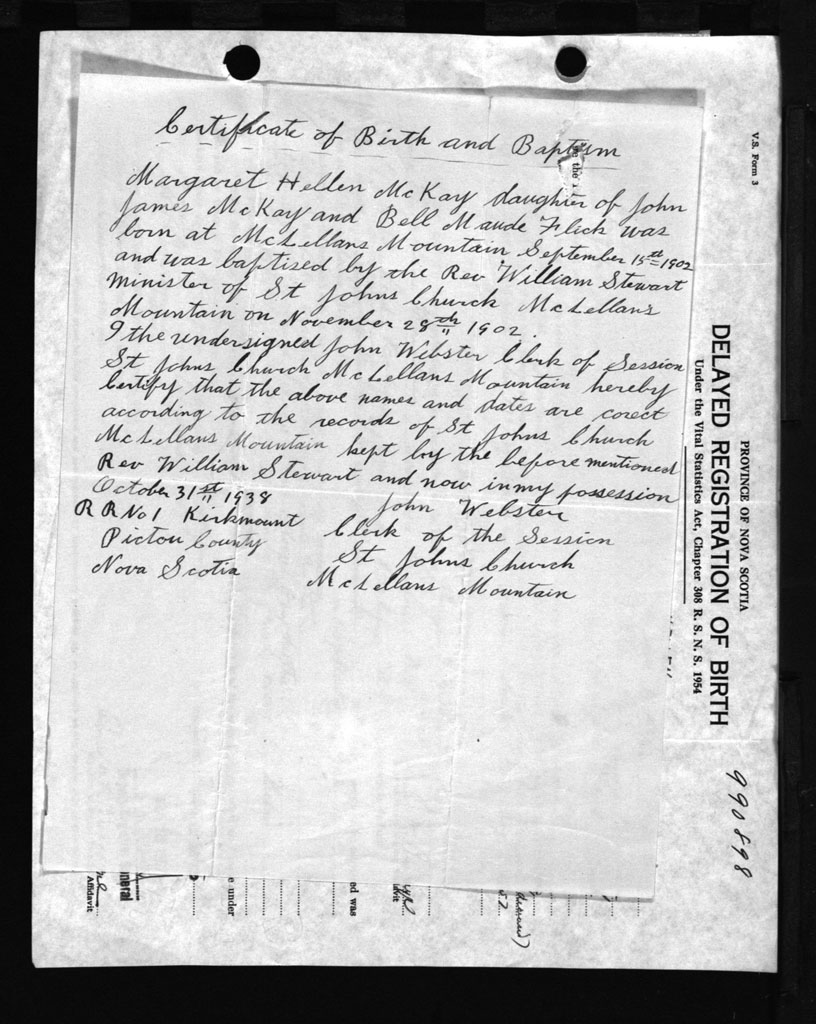 Certificate of Birth and Baptism
Margaret Hellen McKay daughter of John
James McKay and Bell Maude Flick was
born at McLellans Mountain September 15th 1902
and was baptised by the Rev William Stewart
minister of St Johns Church McLellans
Mountain on November 28th 1902.
I the undersigned John Webster Clerk of Session
St Johns Church McLellans Mountain hereby
Certify that the above names and dates are corect
according to the records of St Johns Church
McLellans Mountain kept by the before mentioned
Rev William Stewart and now in my possession
October 31st 1938
John Webster
R R No 1 Kirkmount
Clerk of the Session
Pictou County
St Johns Church
Nova Scotia
McLellans Mountain
V.S. Form 3
PROVINCE OF NOVA SCOTIA
DELAYED REGISTRATION OF BIRTH
Under the Vital Statistics Act, Chapter 308 R. S. N. S. 1954
990898
e under
ed was
Affidavit